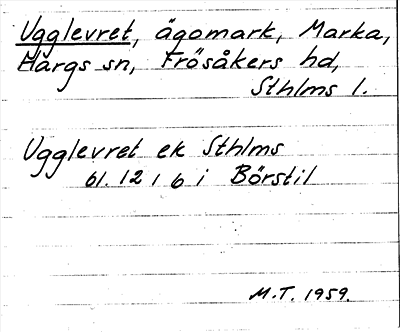 Ugglevret, ägomark, Marka,
Hargs sn, Frösåkers hd,
Sthlms l.
Ugglevret ek Sthlms
bl. 12 1 6 i Börstil
M.T. 1959.